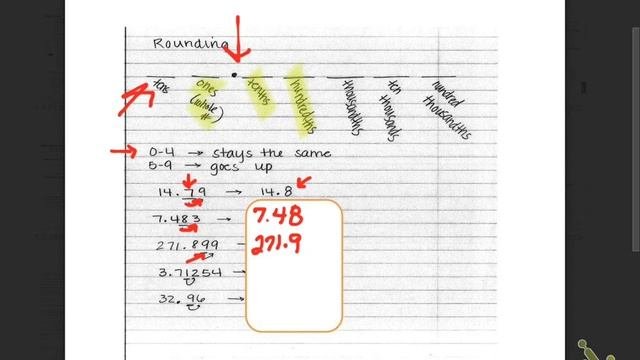 Rounding
tens ones (whole #) tenths hundredths thousandths ten thousands hundred thousandths
0-4 → stays the same
5-9 → goes up
14.79 → 14.8
7.483 → 7.48
271.899 271.9
3.71254 →
32.96 →